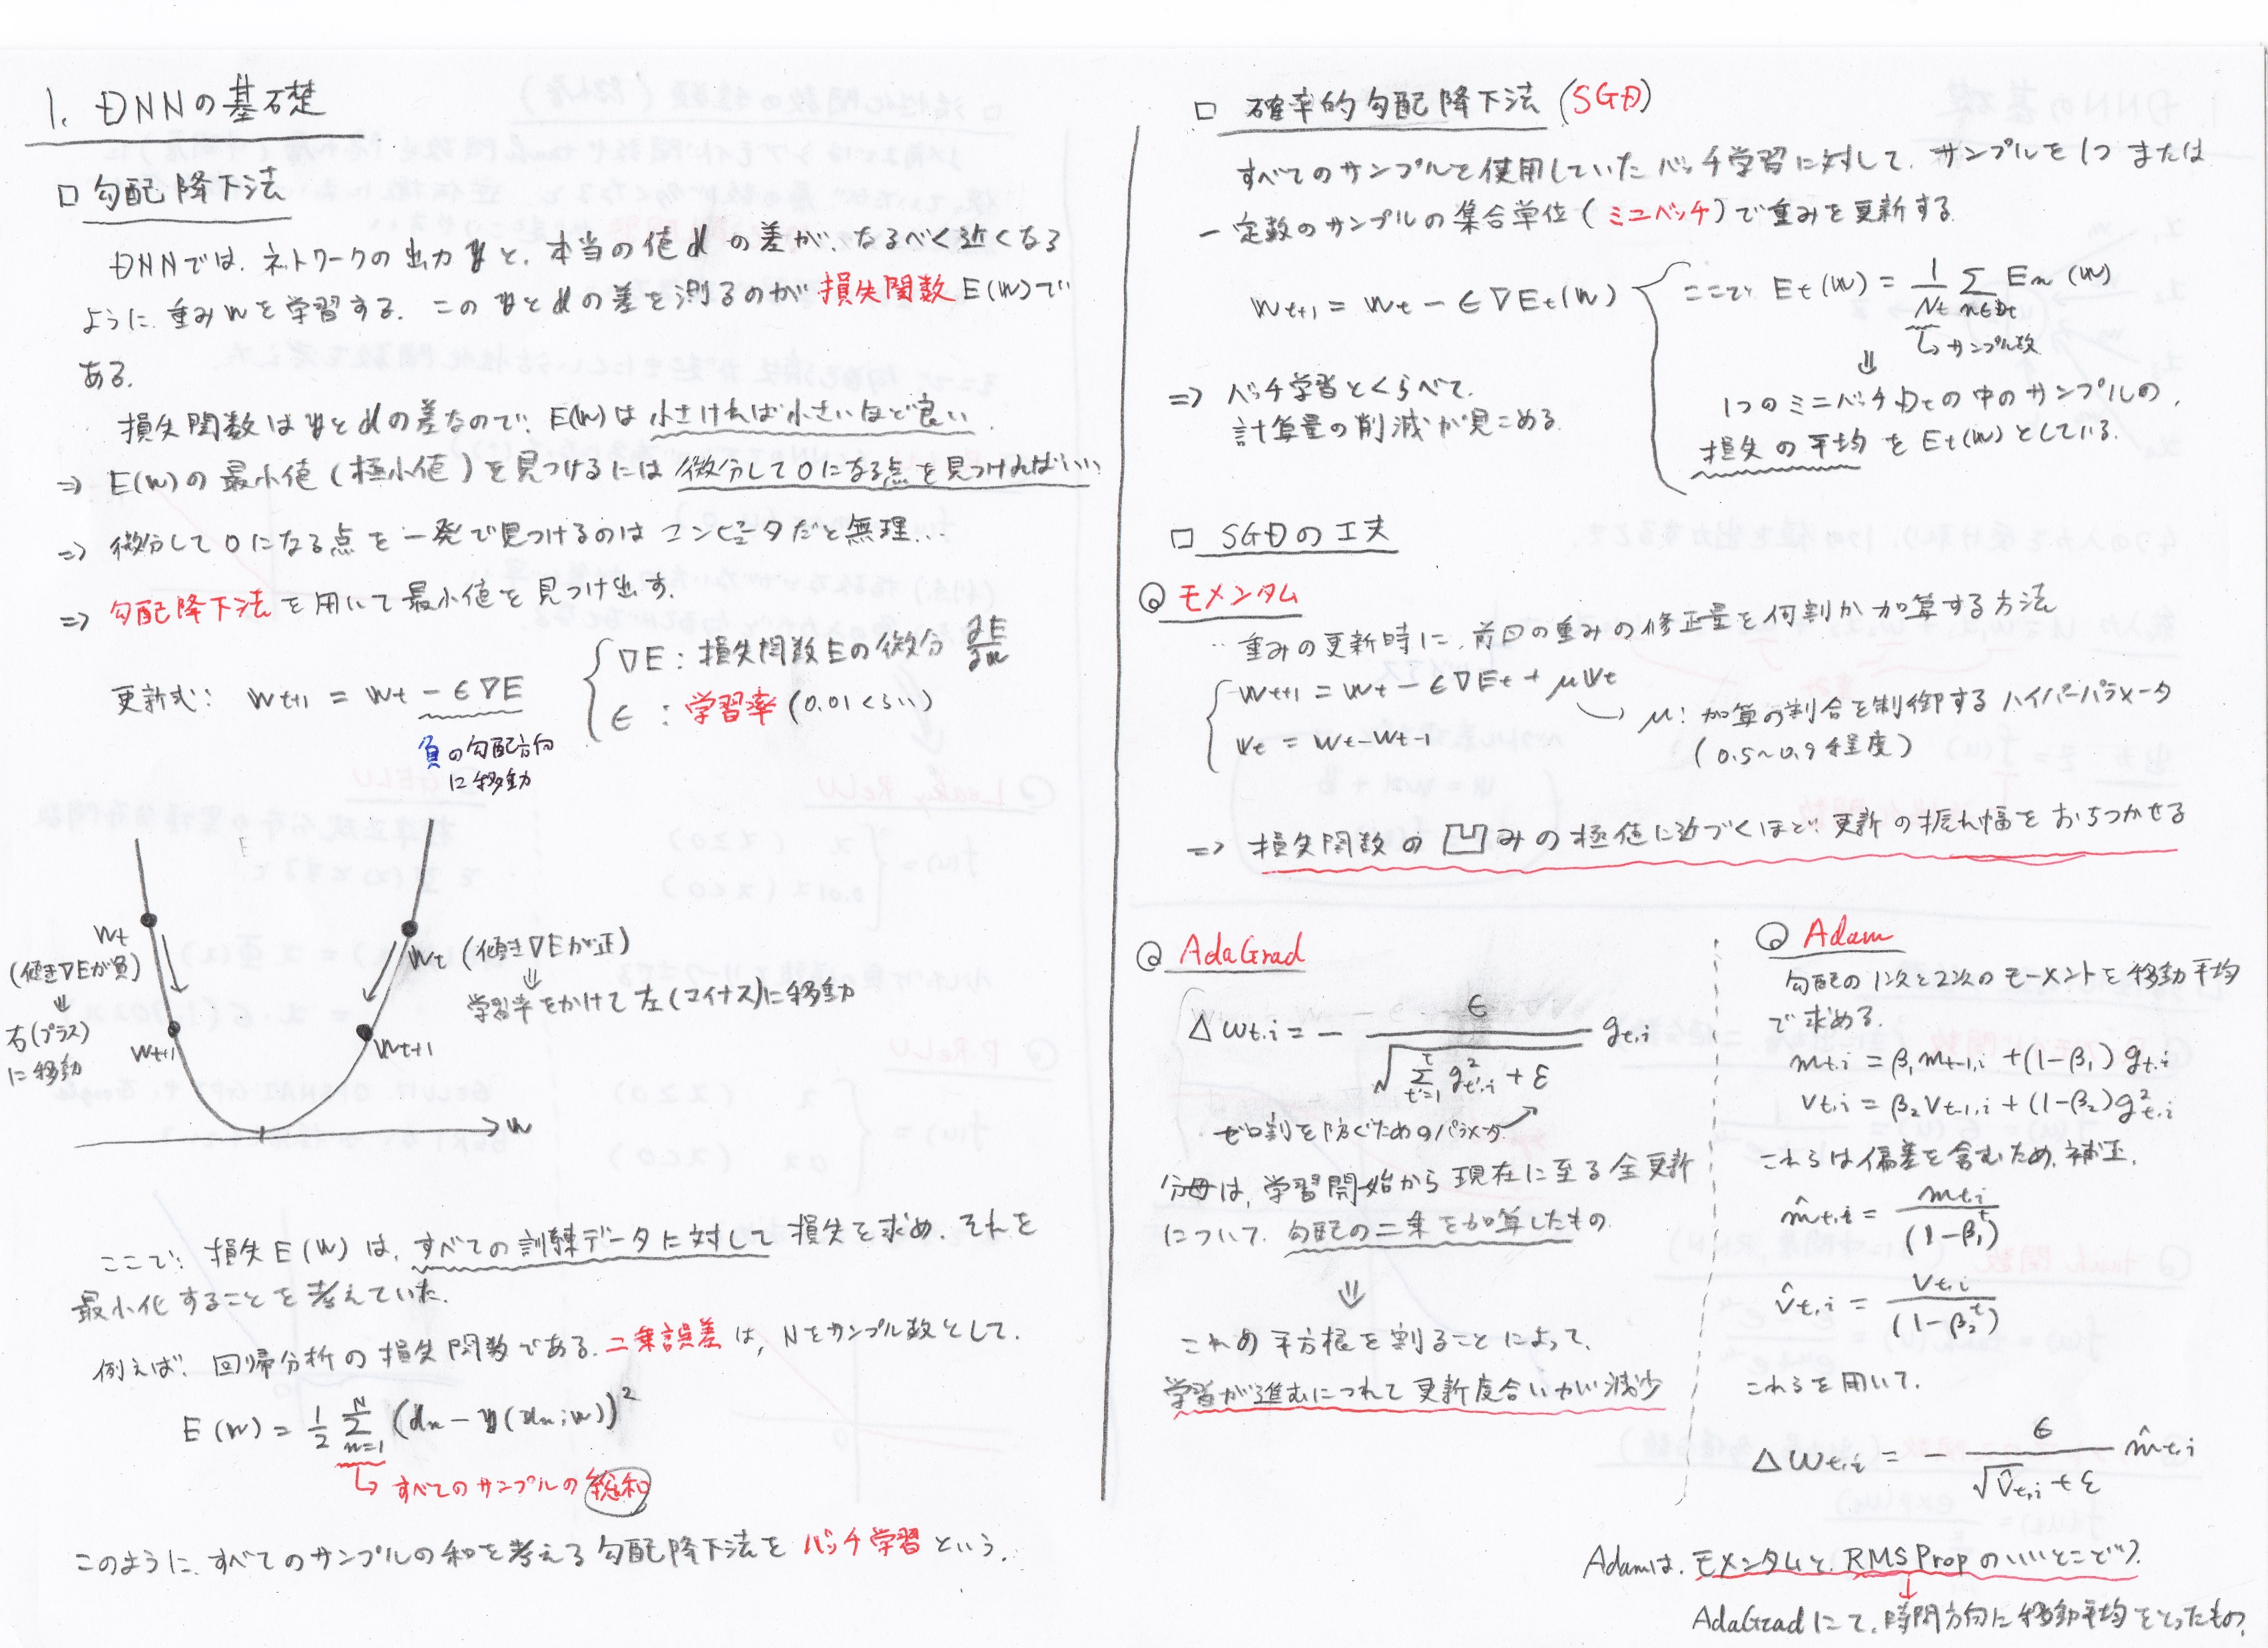 1. DNNの基礎
□ 勾配降下法
DNNでは、ネットワークの出力 y と、本当の値 d の差が、なるべく近くなる
ように、重み w を学習する。この y と d の差を測るのが 損失関数 E(w) で
ある。
損失関数は y と d の差なので、E(w) は 小さければ小さいほど良い.
⇒ E(w) の 最小値 (極小値) を見つけるには 微分して0になる点を見つければいい
⇒ 微分して0になる点を一発で見つけるのは コンピュータだと無理...
⇒ 勾配降下法 を用いて最小値を見つけ出す.
更新式: w t+1 = wt - ε∇E
負の勾配方向
に移動
∇E : 損失関数Eの微分 ∂E/∂w
ε : 学習率 (0.01くらい)
E
wt
(傾き∇Eが負)
⇓
右(プラス)
に移動
wt+1
wt (傾き∇Eが正)
⇓
学習率をかけて左(マイナス)に移動
wt+1
w
ここで、損失 E(w) は、すべての訓練データに対して 損失を求め、それを
最小化することを考えていた.
例えば、回帰分析の損失関数である、二乗誤差 は, Nをサンプル数として.
E(w) = 1/2 Σ_{n=1}^{N} (dn - y(xn; w))²
↳ すべてのサンプルの 総和
このように、すべてのサンプルの和を考える 勾配降下法を バッチ学習 という.
□ 確率的勾配降下法 (SGD)
すべてのサンプルを使用していた バッチ学習に対して、サンプルを1つ または
一定数のサンプルの集合単位 (ミニバッチ) で重みを更新する.
wt+1 = wt - ε∇Et(w)
ここで、Et(w) = 1/Nt Σ_{n∈Dt} En(w)
↳ サンプル数
⇓
1つのミニバッチ Dt の中のサンプルの,
損失の平均 を Et(w) としている.
⇒ バッチ学習とくらべて.
計算量の削減が見こめる.
□ SGDの工夫
◎ モメンタム
‥ 重みの更新時に、前回の重みの修正量を何割か 加算する方法
wt+1 = wt - ε∇Et + μvt
vt = wt - wt-1
μ: 加算の割合を制御する ハイパーパラメータ
(0.5~0.9程度)
⇒ 損失関数の 凹みの極値に近づくほど、更新の振れ幅を おちつかせる
◎ AdaGrad
Δwt,i = - ε / √(Σ_{t'=1}^{t} g²t',i + ε) gt,i
ゼロ割を防ぐためのパラメータ
分母は, 学習開始から 現在に至る 全更新
について. 勾配の二乗を加算したもの.
⇓
これの 平方根を割ることによって、
学習が進むにつれて 更新度合いが減少
◎ Adam
勾配の1次と2次のモーメントを移動平均
で求める.
mt,i = β1mt-1,i + (1-β1)gt,i
vt,i = β2vt-1,i + (1-β2)g²t,i
これらは偏差を含むため、補正.
m̂t,i = mt,i / (1-β1^t)
v̂t,i = vt,i / (1-β2^t)
これらを用いて.
Δwt,i = - ε / (√v̂t,i + ε) m̂t,i
Adamは、モメンタムと、RMSPropのいいとこどり.
↓
AdaGradにて、時間方向に移動平均をとったもの.